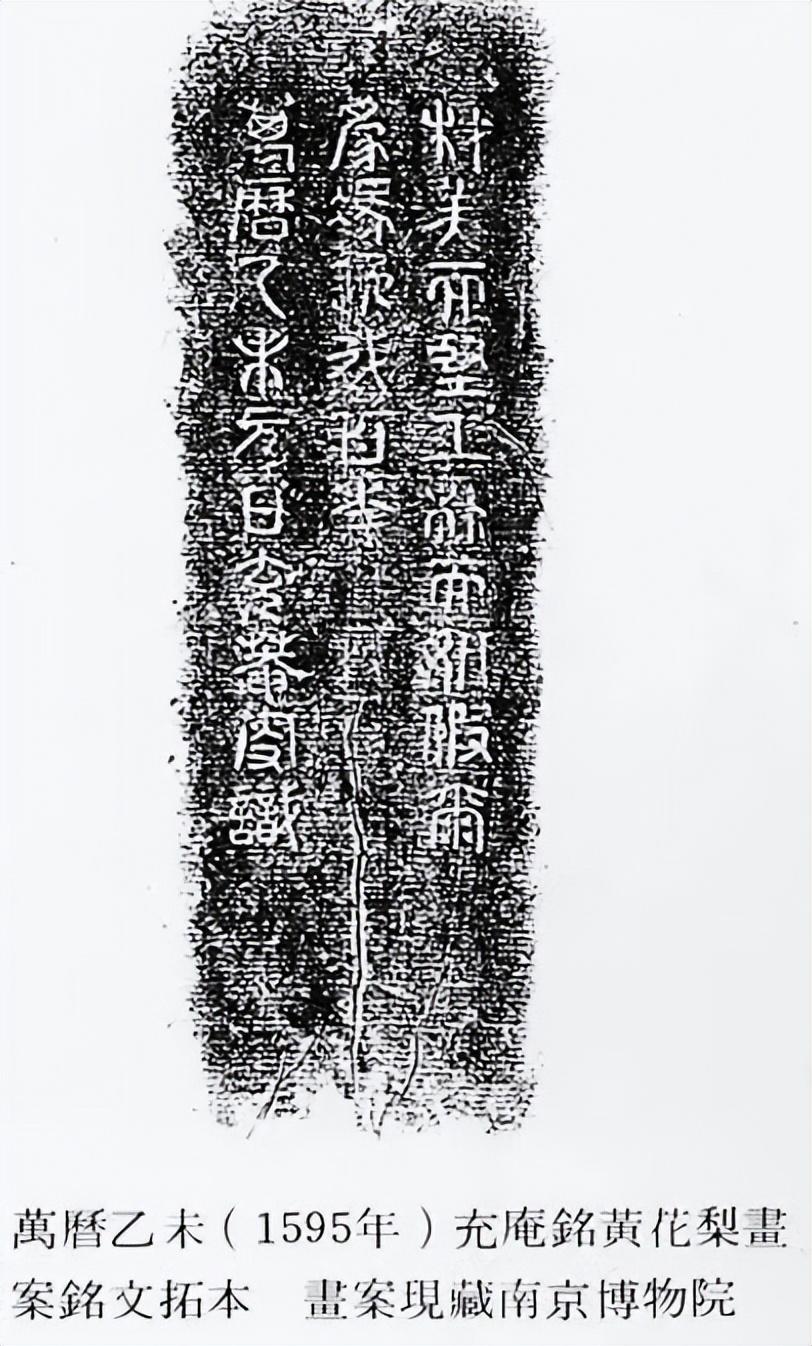 材美而堅工朴而妍假爾
為馮逸我百年
萬曆乙未元日充菴叟識
萬曆乙未(1595年)充庵銘黃花梨畫
案銘文拓本 畫案現藏南京博物院